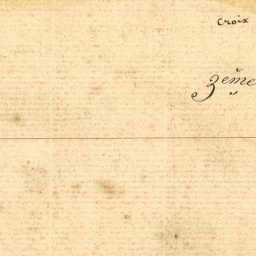 Croix
3ème